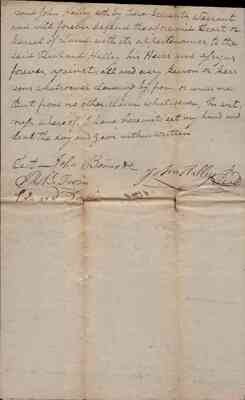 said John Hailey doth by these presents warrant
and will forever defend the aforesaid Tract or
parcel of Land with its appurtenances to the
said Benhand Hailey his Heirs and assigns
forever against all and every person or per
sons whatsoever claiming by from or under me
But from no other claim whatsoever. In test
whereof, I have hereunto set my hand and
Seal the day and year within written
Test John
John Hailey Seal